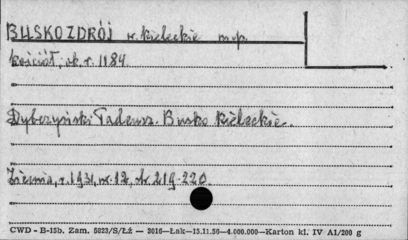 BUSKO ZDRÓJ w. kieleckie m.p.
kościół, ok. r. 1184.
Dybczyński Tadeusz. Busko Kieleckie.
Ziemia, r. 1931, nr. 12, str. 219-220.
CWD - B-15b. Zam. 5023/S/Łż — 3016—Łak—15.11.56—4.000.000—Karton kl. IV A1/200 g